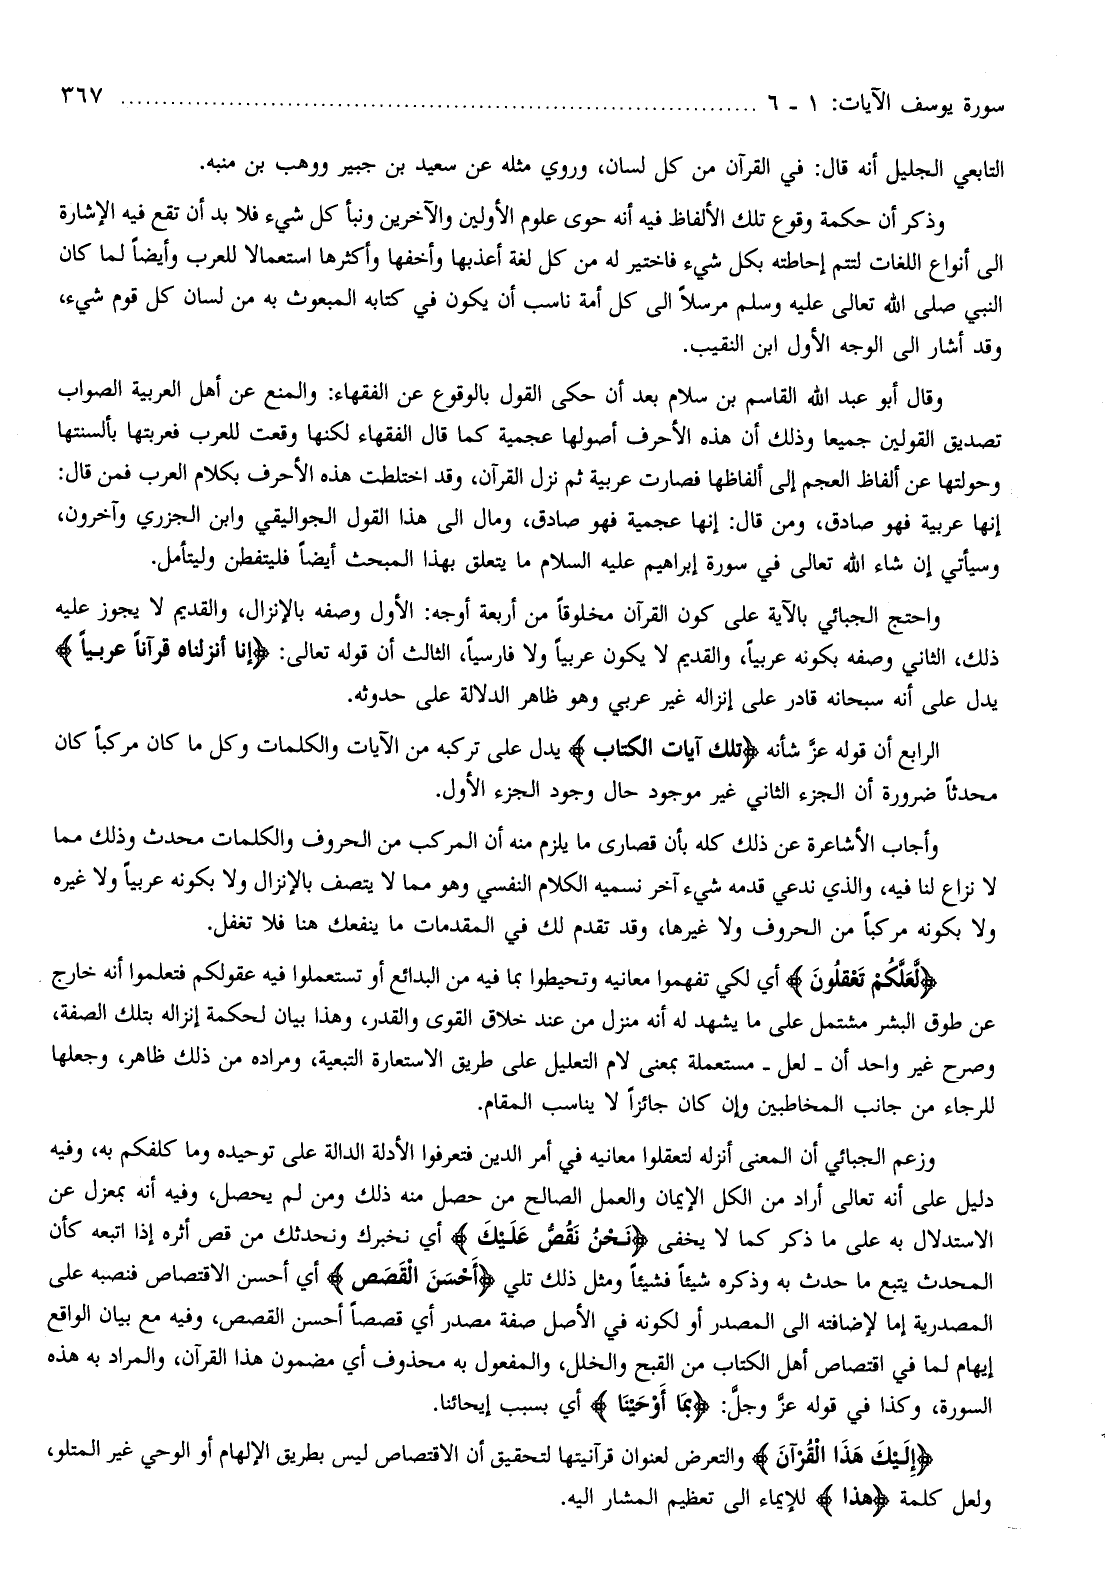 سورة يوسف الآيات: ١ ـ ٦ ................................................................................ ٣٦٧
التابعي الجليل أنه قال: في القرآن من كل لسان، وروي مثله عن سعيد بن جبير ووهب بن منبه.
وذكر أن حكمة وقوع تلك الألفاظ فيه أنه حوى علوم الأولين والآخرين ونبأ كل شيء فلا بد أن تقع فيه الإشارة
الى أنواع اللغات لتتم إحاطته بكل شيء فاختير له من كل لغة أعذبها وأخفها وأكثرها استعمالا للعرب وأيضاً لما كان
النبي صلى الله تعالى عليه وسلم مرسلاً الى كل أمة ناسب أن يكون في كتابه المبعوث به من لسان كل قوم شيء،
وقد أشار الى الوجه الأول ابن النقيب.
وقال أبو عبد الله القاسم بن سلام بعد أن حكى القول بالوقوع عن الفقهاء: والمنع عن أهل العربية الصواب
تصديق القولين جميعا وذلك أن هذه الأحرف أصولها عجمية كما قال الفقهاء لكنها وقعت للعرب فعربتها بألسنتها
وحولتها عن ألفاظ العجم إلى ألفاظها فصارت عربية ثم نزل القرآن، وقد اختلطت هذه الأحرف بكلام العرب فمن قال:
إنها عربية فهو صادق، ومن قال: إنها عجمية فهو صادق، ومال الى هذا القول الجواليقي وابن الجزري وآخرون،
وسيأتي إن شاء الله تعالى في سورة إبراهيم عليه السلام ما يتعلق بهذا المبحث أيضاً فليتفطن وليتأمل.
واحتج الجبائي بالآية على كون القرآن مخلوقاً من أربعة أوجه: الأول وصفه بالإنزال، والقديم لا يجوز عليه
ذلك، الثاني وصفه بكونه عربياً، والقديم لا يكون عربياً ولا فارسياً، الثالث أن قوله تعالى: ﴿إنا أنزلناه قرآناً عربياً﴾
يدل على أنه سبحانه قادر على إنزاله غير عربي وهو ظاهر الدلالة على حدوثه.
الرابع أن قوله عزَّ شأنه ﴿تلك آيات الكتاب﴾ يدل على تركبه من الآيات والكلمات وكل ما كان مركباً كان
محدثاً ضرورة أن الجزء الثاني غير موجود حال وجود الجزء الأول.
وأجاب الأشاعرة عن ذلك كله بأن قصارى ما يلزم منه أن المركب من الحروف والكلمات محدث وذلك مما
لا نزاع لنا فيه، والذي ندعي قدمه شيء آخر نسميه الكلام النفسي وهو مما لا يتصف بالإنزال ولا بكونه عربياً ولا غيره
ولا بكونه مركباً من الحروف ولا غيرها، وقد تقدم لك في المقدمات ما ينفعك هنا فلا تغفل.
﴿لَّعَلَّكُمْ تَعْقِلُونَ﴾ أي لكي تفهموا معانيه وتحيطوا بما فيه من البدائع أو تستعملوا فيه عقولكم فتعلموا أنه خارج
عن طوق البشر مشتمل على ما يشهد له أنه منزل من عند خلاق القوى والقدر، وهذا بيان لحكمة إنزاله بتلك الصفة،
وصرح غير واحد أن ـ لعل ـ مستعملة بمعنى لام التعليل على طريق الاستعارة التبعية، ومراده من ذلك ظاهر، وجعلها
للرجاء من جانب المخاطبين وإن كان جائزاً لا يناسب المقام.
وزعم الجبائي أن المعنى أنزله لتعقلوا معانيه في أمر الدين فتعرفوا الأدلة الدالة على توحيده وما كلفكم به، وفيه
دليل على أنه تعالى أراد من الكل الإيمان والعمل الصالح من حصل منه ذلك ومن لم يحصل، وفيه أنه بمعزل عن
الاستدلال به على ما ذكر كما لا يخفى ﴿نَحْنُ نَقُصُّ عَلَيْكَ﴾ أي نخبرك ونحدثك من قص أثره إذا اتبعه كأن
المحدث يتبع ما حدث به وذكره شيئاً فشيئاً ومثل ذلك تلي ﴿أَحْسَنَ الْقَصَصِ﴾ أي أحسن الاقتصاص فنصبه على
المصدرية إما لإضافته الى المصدر أو لكونه في الأصل صفة مصدر أي قصصاً أحسن القصص، وفيه مع بيان الواقع
إيهام لما في اقتصاص أهل الكتاب من القبح والخلل، والمفعول به محذوف أي مضمون هذا القرآن، والمراد به هذه
السورة، وكذا في قوله عزَّ وجلَّ: ﴿بِمَا أَوْحَيْنَا﴾ أي بسبب إيحائنا.
﴿إِلَيْكَ هَذَا الْقُرْآنَ﴾ والتعرض لعنوان قرآنيتها لتحقيق أن الاقتصاص ليس بطريق الإلهام أو الوحي غير المتلو،
ولعل كلمة ﴿هذا﴾ للإيماء الى تعظيم المشار اليه.